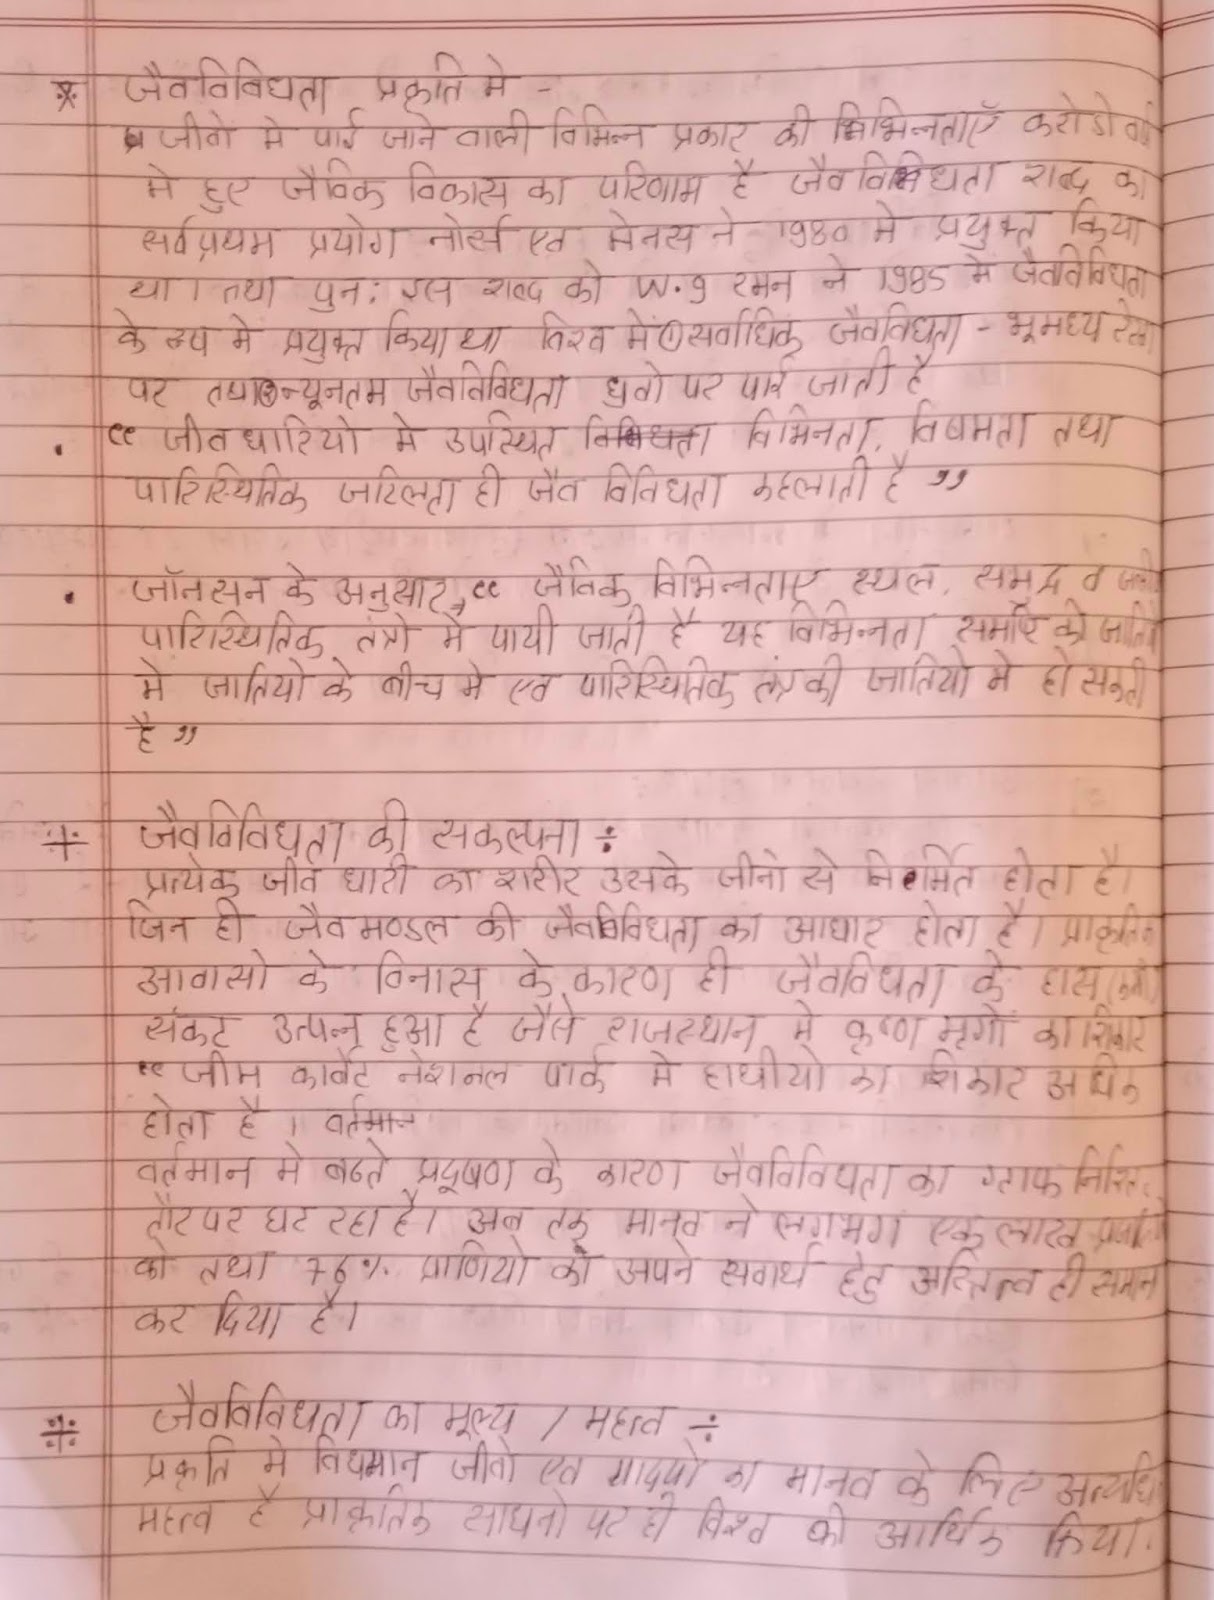 * जैवविविधता प्रकृति मे -
जीवो मे पाई जाने वाली विभिन्न प्रकार की भिभिन्नताएँ करोडो वर्ष
मे हुए जैविक विकास का परिणाम है जैवविविधता शब्द का
सर्वप्रथम प्रयोग नोर्स एव मेनस ने 1980 मे प्रयुक्त किया
था। तथा पुन: इस शब्द को W.g रमन ने 1985 मे जैवविविधता
के रूप मे प्रयुक्त किया था विश्व मे ① सर्वाधिक जैवविधता - भूमध्य रेखा
पर तथा ② न्यूनतम जैवविविधता ध्रुवो पर पाई जाती है
. “ जीव धारियो मे उपस्थित विभिन्नता, विषमता तथा
पारिस्थितिक जटिलता ही जैव विविधता कहलाती है ”
. जॉनसन के अनुसार, “ जैविक विभिन्नताए स्थल, समुद्र व
पारिस्थितिक तंत्रो मे पायी जाती है यह विभिन्नता की
मे जातियो के बीच मे एव पारिस्थितिक तंत्र की जातियो मे हो सकती
है ”
जैवविविधता की सकल्पना ÷
प्रत्येक जीव धारी का शरीर उसके जीनो से निर्मित होता है।
जिन ही जैवमण्डल की जैवविविधता का आधार होता है। प्राकृतिक
आवासो के विनास के कारण ही जैवविधता के हास
संकट उत्पन्न हुआ है जैसे राजस्थान मे कृष्ण मृगो का शिकार
“ जीम कार्बेट नेशनल पार्क मे हाथीयो का शिकार अधिक
होता है । वर्तमान
वर्तमान मे बढते प्रदूषण के कारण जैवविविधता का ग्राफ
तौर पर घट रहा है। अब तक मानव ने लगभग एक लाख
को तथा 76% प्राणियो को अपने सवार्थ हेतु अस्तित्व ही
कर दिया है।
जैवविविधता का मूल्य / महत्व ÷
प्रकृति मे विधमान जीवो एव का मानव के लिए
महत्व है प्राकृतिक साधनो पर ही विश्व की आर्थिक